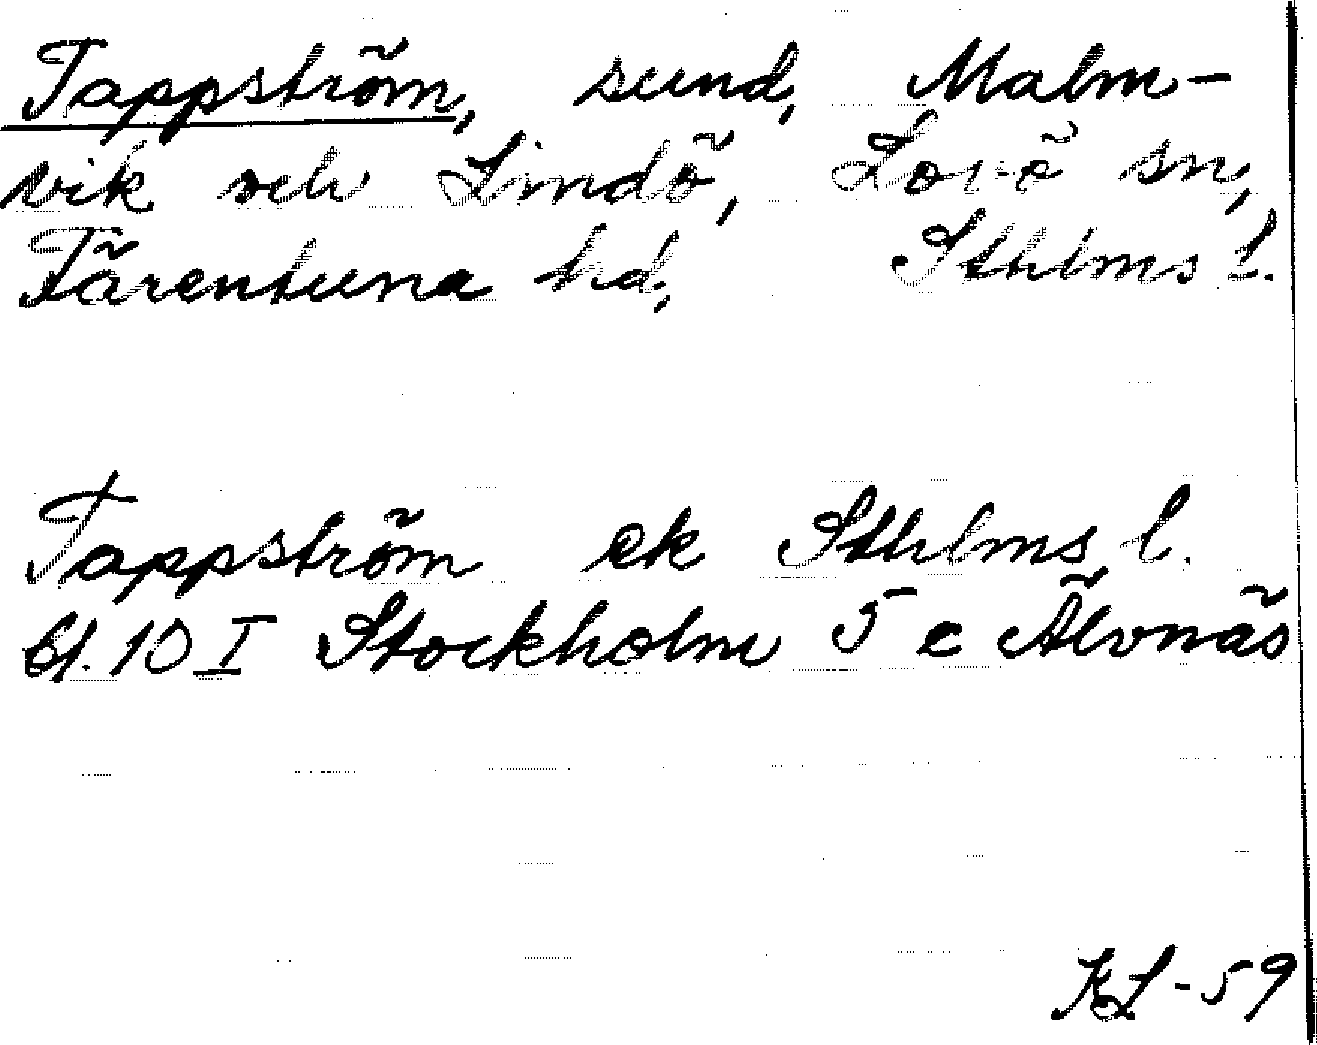 Tappström, sund, Malm-
vik och Lindö, Lovö sn,
Färentuna hd, Sthlms l.
Tappström ek Sthlms l.
bl. 10 I Stockholm 5 e Älvnäs
KL-59